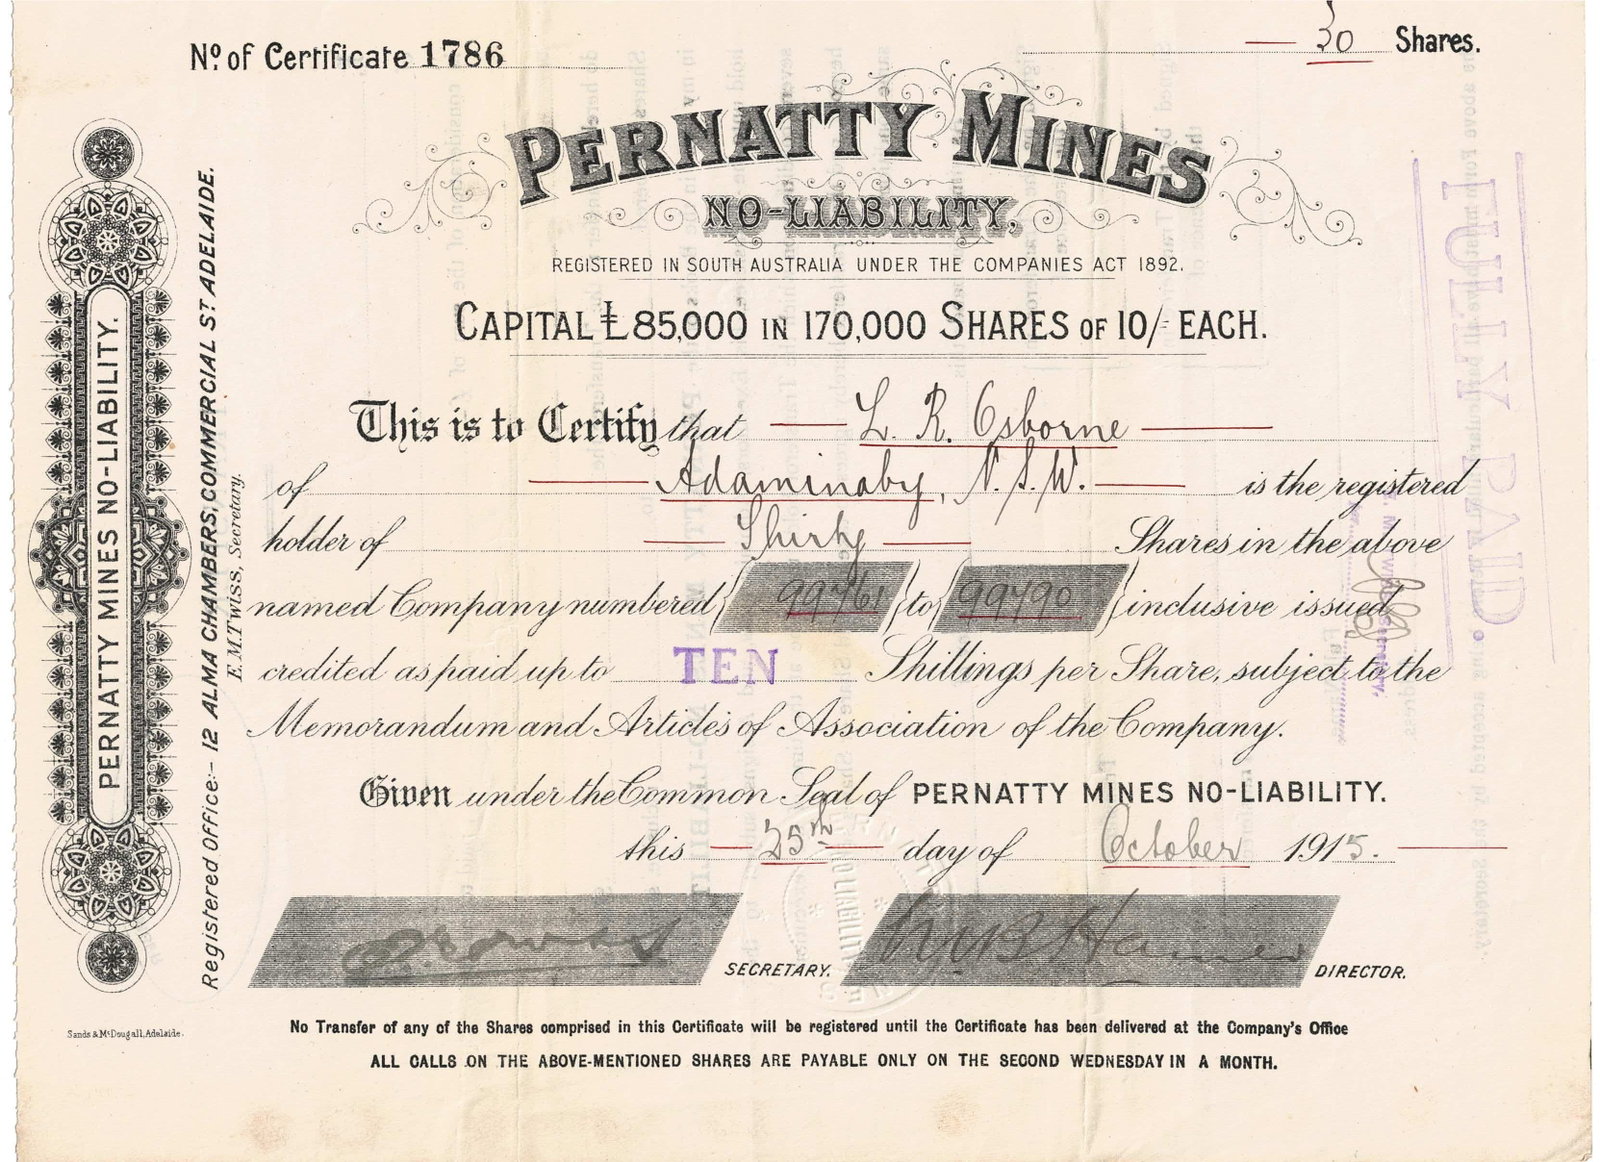 Nº of Certificate 1786
30 Shares.
PERNATTY MINES
NO-LIABILITY,
REGISTERED IN SOUTH AUSTRALIA UNDER THE COMPANIES ACT 1892.
CAPITAL £85,000 IN 170,000 SHARES OF 10/- EACH.
This is to Certify that L. R. Osborne
of Adaminaby, N.S.W. is the registered
holder of Thirty Shares in the above
named Company numbered 99461 to 99490 inclusive issued
credited as paid up to TEN Shillings per Share, subject to the
Memorandum and Articles of Association of the Company.
Given under the Common Seal of PERNATTY MINES NO-LIABILITY.
this 25th day of October 1915.
SECRETARY.
DIRECTOR.
No Transfer of any of the Shares comprised in this Certificate will be registered until the Certificate has been delivered at the Company's Office
ALL CALLS ON THE ABOVE-MENTIONED SHARES ARE PAYABLE ONLY ON THE SECOND WEDNESDAY IN A MONTH.
PERNATTY MINES NO-LIABILITY.
Registered Office:- 12 ALMA CHAMBERS, COMMERCIAL ST ADELAIDE.
E.M. Twiss, Secretary.
Sands & McDougall, Adelaide.
FULLY PAID.